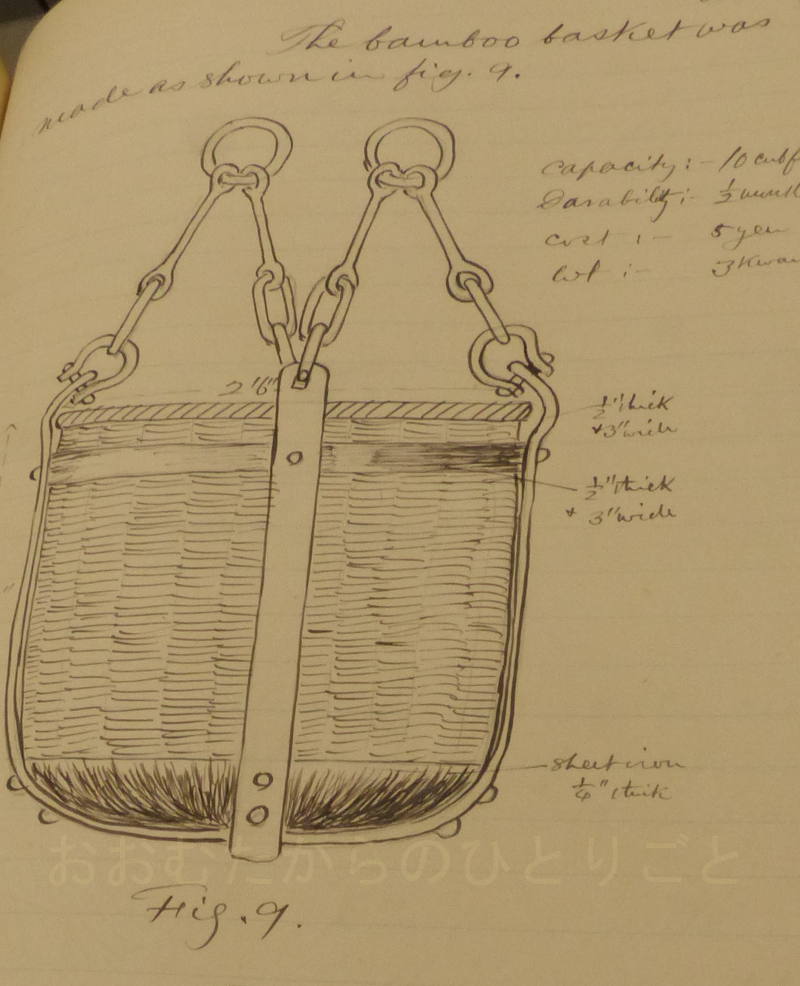 The bamboo basket was
made as shown in fig. 9.
capacity :- 10 cubf
Durability :- ½ month
cost :- 5 yen
wt :- 3 Kwan
2'6"
½" thick
+ 3" wide
½" thick
+ 3" wide
sheet iron
¼" thick
おおむたからのひとりごと
Fig. 9.